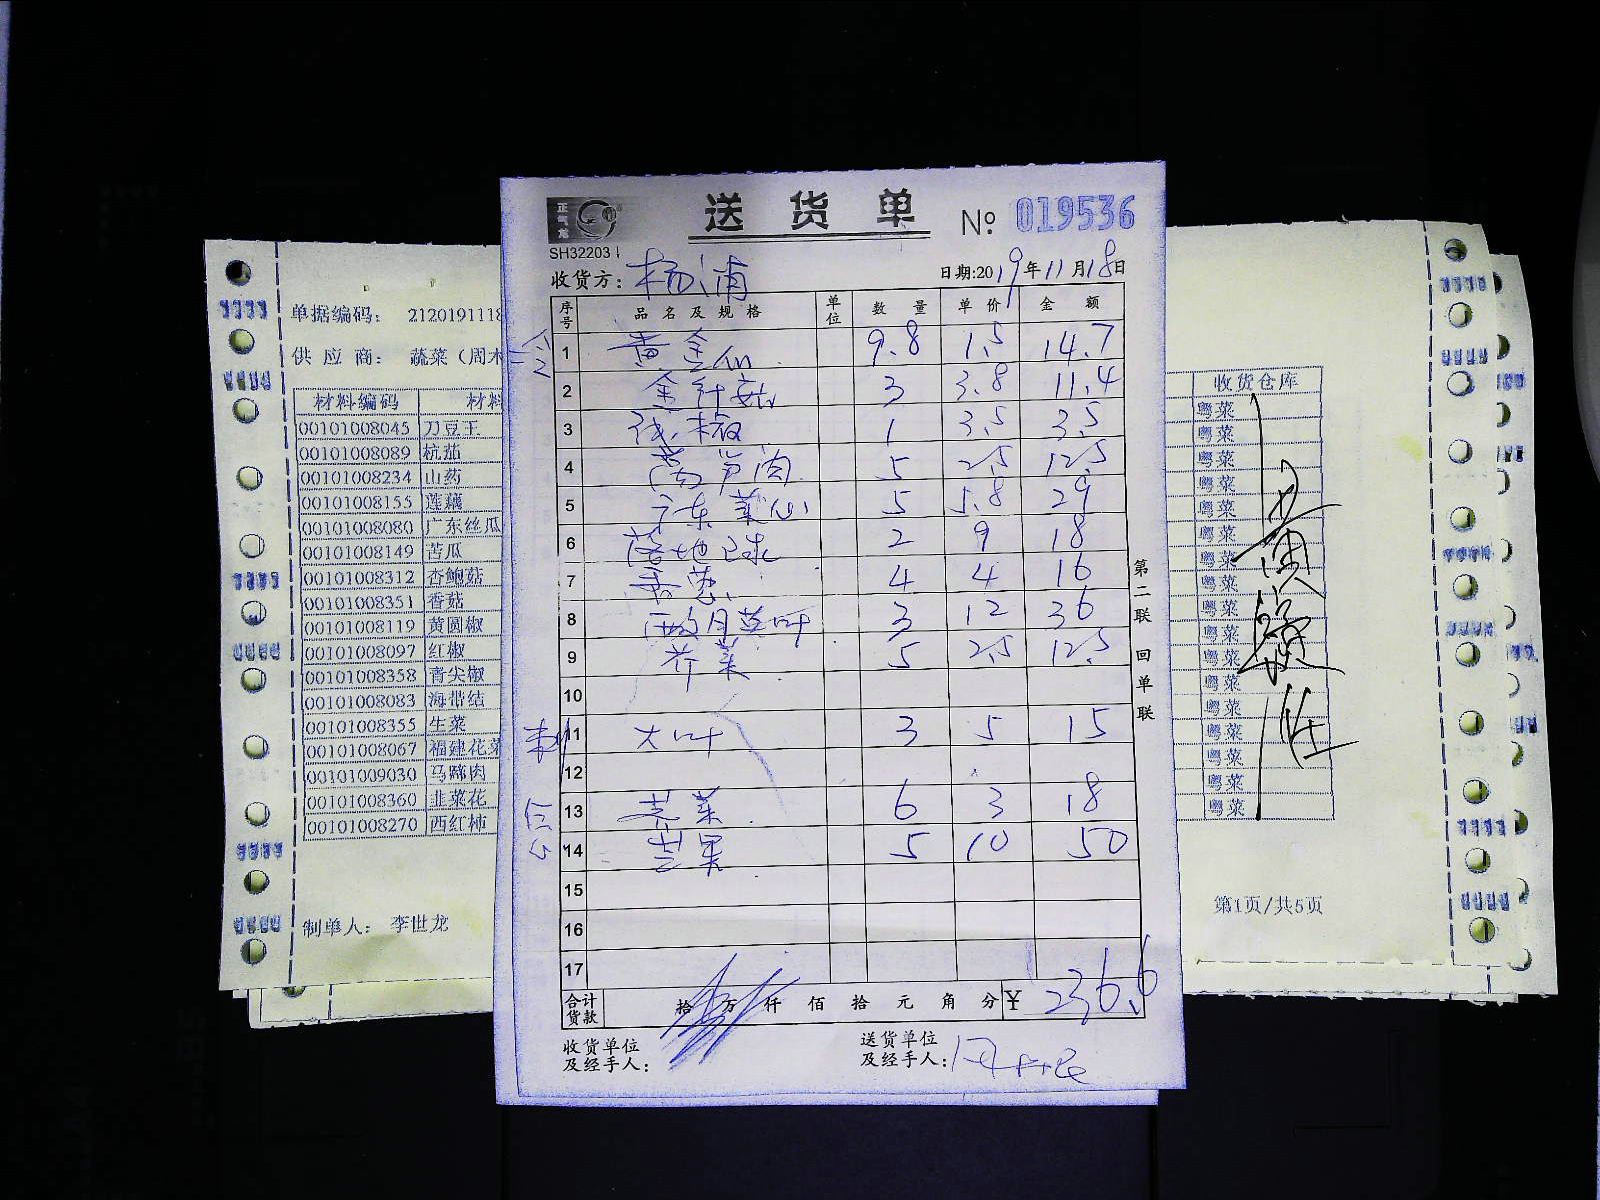 送货单 № 019536
正气龙
SH32203
收货方: 杨浦 日期:2019年11月18日
序号 品名及规格 单位 数量 单价 金额
1 黄金瓜 9.8 1.5 14.7
2 金针菇 3 3.8 11.4
3 线椒 1 3.5 3.5
4 莴笋肉 5 2.5 12.5
5 广东菜心 5 5.8 29
6 落地球 2 9 18
7 香葱 4 4 16
8 3 12 36
9 芥菜 5 2.5 12.5
10
11 大叶 3 5 15
12
13 6 3 18
14 芒果 5 10 50
15
16
17
合计货款 拾 万 仟 佰 拾 元 角 分 ¥ 236.6
收货单位及经手人:
送货单位及经手人:
第二联 回单联
单据编码: 2120191118
供应商: 蔬菜（周末
材料编码 材料
00101008045 刀豆王
00101008089 杭茄
00101008234 山药
00101008155 莲藕
00101008080 广东丝瓜
00101008149 苦瓜
00101008312 杏鲍菇
00101008351 香菇
00101008119 黄圆椒
00101008097 红椒
00101008358 青尖椒
00101008083 海带结
00101008355 生菜
00101008067 福建花菜
00101009030 马蹄肉
00101008360 韭菜花
00101008270 西红柿
制单人: 李世龙
收货仓库
粤菜
粤菜
粤菜
粤菜
粤菜
粤菜
粤菜
粤菜
粤菜
粤菜
粤菜
粤菜
粤菜
粤菜
粤菜
粤菜
粤菜
第1页/共5页